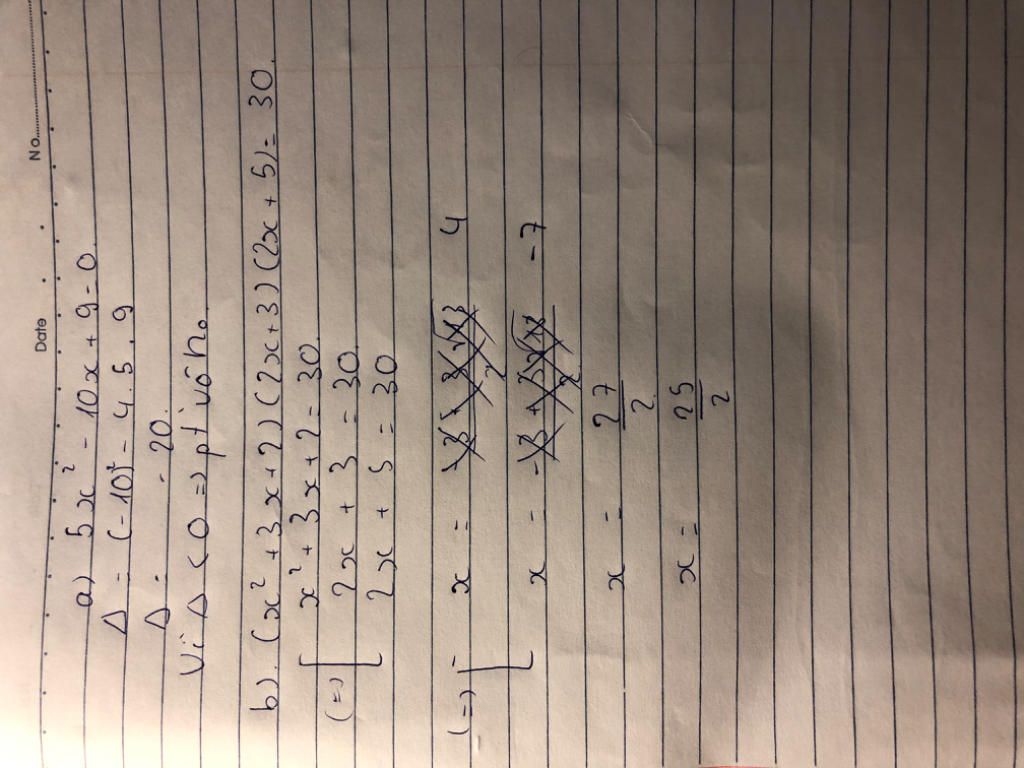 Date No.
a) 5x² - 10x + 9 = 0.
Δ = (-10)² - 4.5.9
Δ = - 20.
Vì Δ < 0 => pt vô n₀
b). (x² + 3x + 2) (2x + 3) (2x + 5) = 30.
x² + 3x + 2 = 30.
(=) [ 2x + 3 = 30.
2x + 5 = 30
(=) [ x = 4
x = -7
x = 27/2
x = 25/2